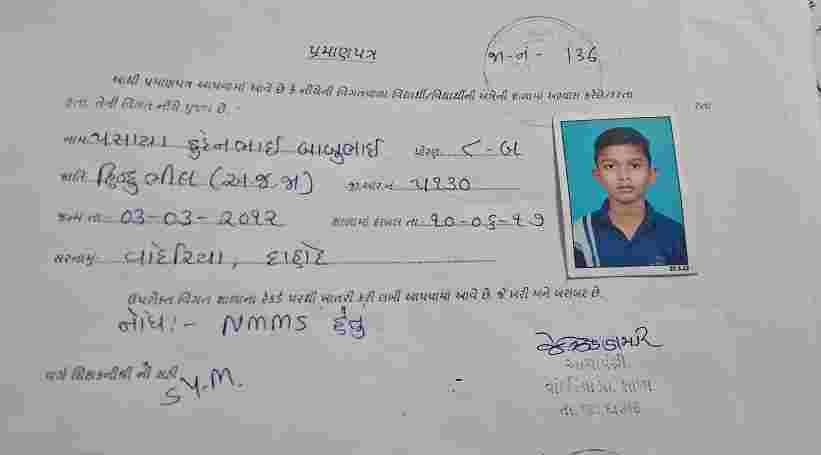 પ્રમાણપત્ર
જા-નં - 136
આથી પ્રમાણપત્ર આપવામાં આવે છે કે નીચેની વિગતવાળા વિદ્યાર્થી/વિદ્યાર્થીની અત્રેની શાળામાં અભ્યાસ કરેછે/કરતા
હતા. તેની વિગત નીચે મુજબ છે. -
નામ: પસાયા બાબુભાઈ ધોરણ ૮-બ
જાતિ હિન્દુ ભીલ (અ.જ.જા) જી.આર.નં ૫૧૩૦
જન્મ તા 03-03-૨૦૧૨ શાળામાં દાખલ તા. ૧૦-૦૬-૧૭
સરનામુ: દાહોદ
ઉપરોક્ત વિગત શાળાના રેકર્ડ પરથી ખાતરી કરી લખી આપવામાં આવે છે. જે ખરી અને બરાબર છે.
નોંધ:- NMMS હેતુ
વર્ગ શિક્ષકનીશ્રી ની સહી
S.Y.M.
આચાર્યશ્રી